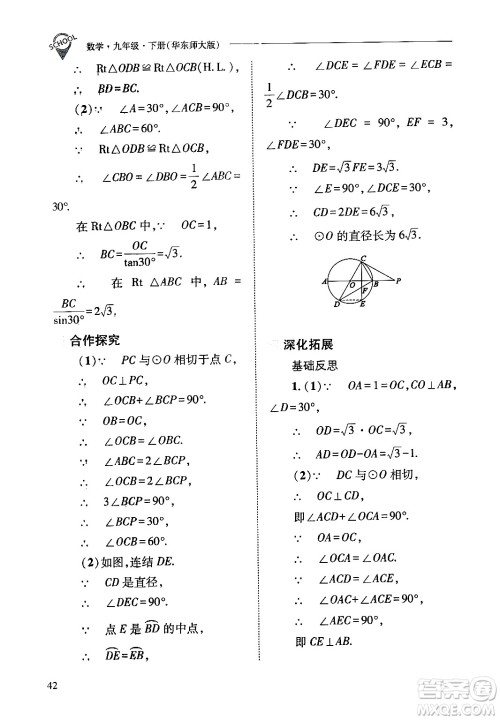 SCHOOL
数学·九年级·下册(华东师大版)
∴ Rt△ODB≌Rt△OCB(H.L.)
∴ BD=BC.
(2)∵ ∠A=30°,
∴ ∠ABC=60°.
∵ Rt△ODB≌Rt△OCB,
∴ ∠CBO=∠DBO=1/2∠ABC=
30°.
在 Rt△OBC 中,∵ OC=1,
∴ BC=OC/tan30°=√3.
∴ 在 Rt△ABC 中,AB=
BC/sin30°=2√3.
合作探究
(1)∵ PC 与⊙O相切于点 C,
∴ OC⊥PC,
∴ ∠OCB+∠BCP=90°.
∵ OB=OC,
∴ ∠OCB=∠OBC.
∵ ∠ABC=2∠BCP,
∴ ∠OCB=2∠BCP,
∴ 3∠BCP=90°,
∴ ∠BCP=30°.
(2)如图,连结 DE.
∵ CD 是直径,
∴ ∠DEC=90°.
∵ 点 E 是BD的中点,
∴ DE=EB,
42
∴ ∠DCE=∠FDE=∠ECB=
1/2∠DCB=30°.
∵ ∠DEC=90°,EF=3,
∠FDE=30°,
∴ DE=√3FE=3√3.
∵ ∠E=90°,∠DCE=30°,
∴ CD=2DE=6√3,
∴ ⊙O 的直径长为 6√3.
C
A O B P
F
D E
深化拓展
基础反思
1.(1)∵ OA=1=OC,CO⊥AB,
∠D=30°,
∴ OD=√3·OC=√3,
∴ AD=OD-OA=√3-1.
(2)∵ DC 与⊙O相切,
∴ OC⊥CD,
即∠ACD+∠OCA=90°.
∵ OC=OA,
∴ ∠OCA=∠OAC.
∵ ∠ACD=∠ACE,
∴ ∠OAC+∠ACE=90°,
∴ ∠AEC=90°,
即 CE⊥AB.
答案圈
MXQE.COM